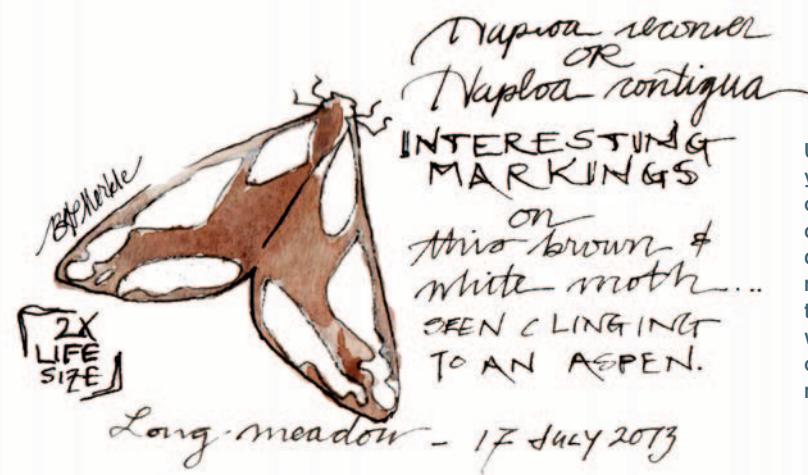 Haploa lecontei
OR
Haploa contigua
INTERESTING
MARKINGS
on
this brown &
white moth...
SEEN CLINGING
TO AN ASPEN.
BGMerkle
2X
LIFE
SIZE
Long meadow - 17 JULY 2013